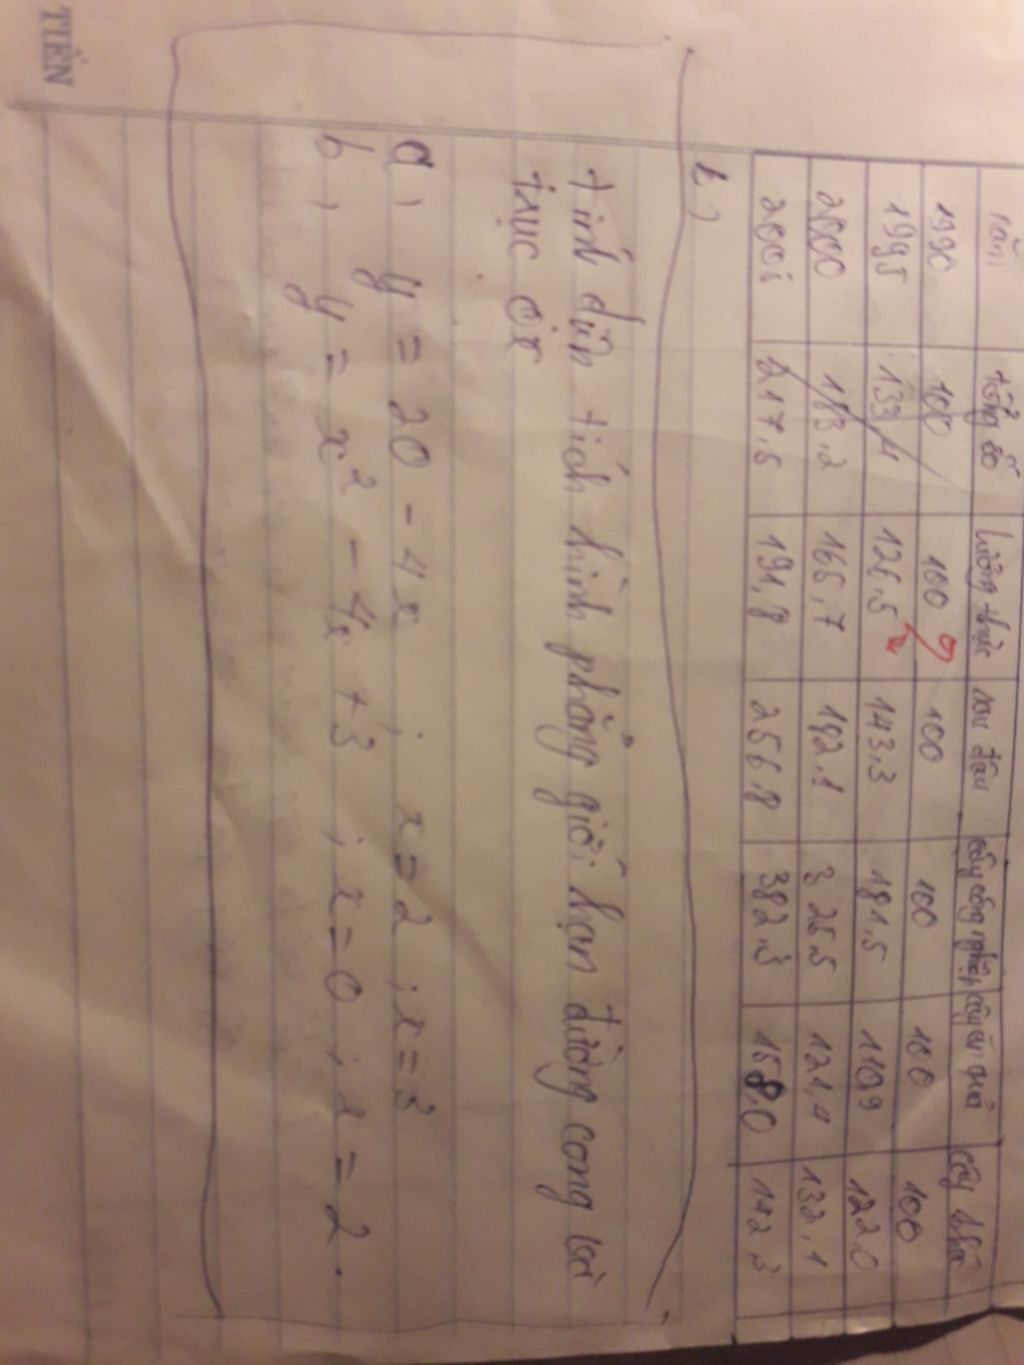 năm tổng số lương thực rau đậu cây công nghiệp cây ăn quả cây khác
1990 100 100 100 100 100 100
1995 133,4 126,5 143,3 181,5 110,9 122,0
2000 183,2 165,7 182,1 325,5 121,4 132,1
2005 217,5 191,8 256,8 382,3 158,0 142,3
b)
tính diện tích hình phẳng giới hạn đường cong và
trục ox
a) y = 20 - 4x ; x = 2 ; x = 3
b) y = x² - 4x + 3 ; x = 0 ; x = 2 .
TIẾN